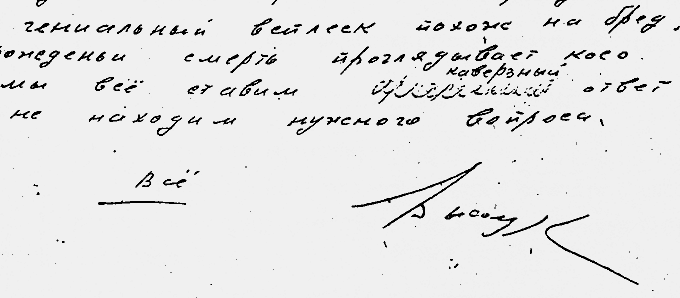 гениальный всплеск похож на бред,
рожденьи смерть проглядывает косо.
мы всё ставим каверзный ответ
не находим нужного вопроса.
Всё